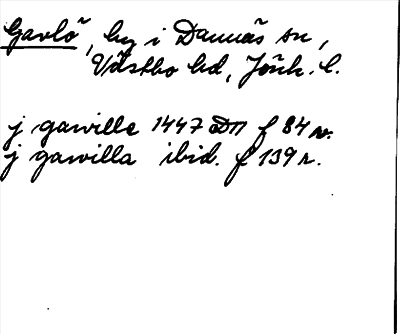 Gavlö, by i Dannäs sn,
Västbo hd, Jönk. l.
j gawille 1447 Dn f 84 v.
j gawilla ibid. f 139 r.